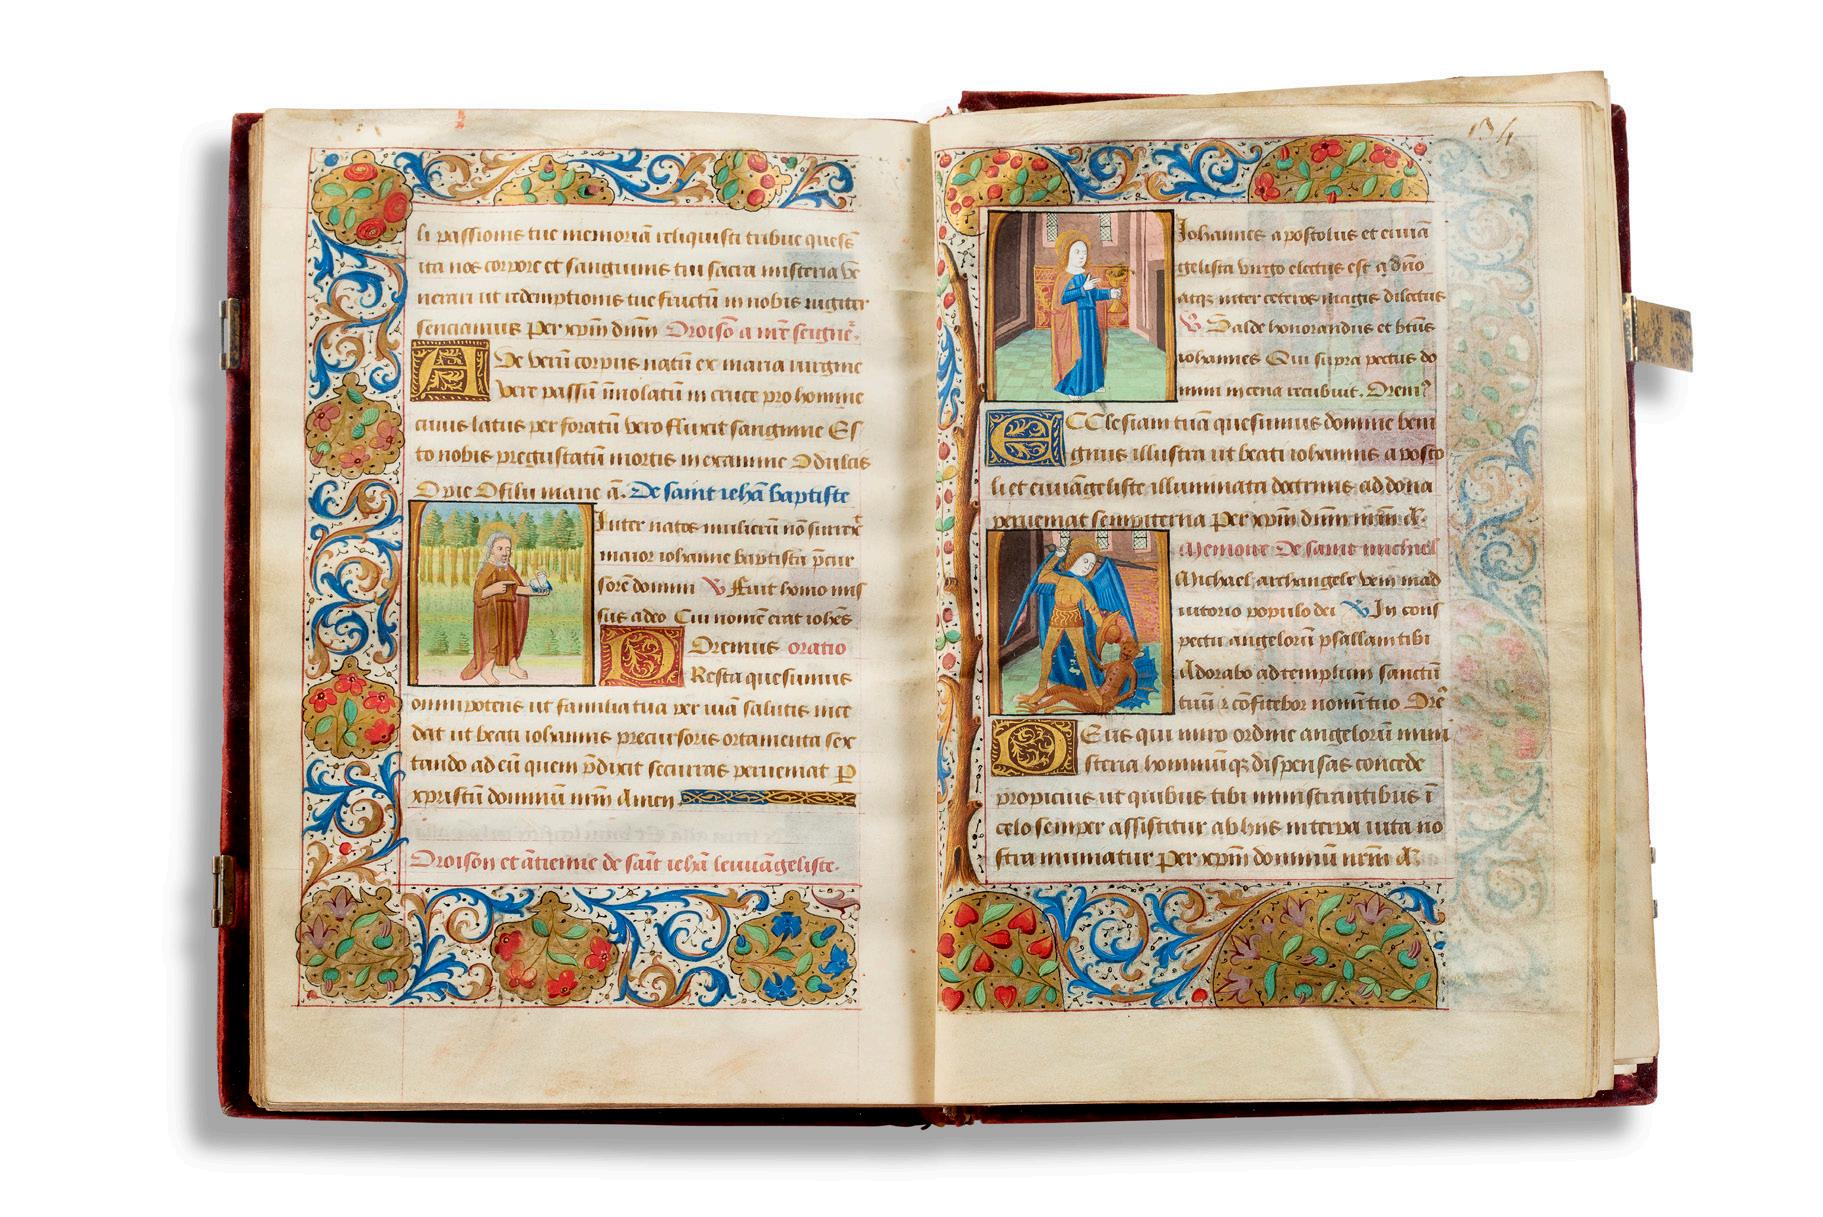 li passionis tue memoriā reliquisti tribue quesꝭ
ita nos corpore et sanguinis tui sacra misteria ve
nerari ut redemptionis tue fructū in nobis iugiter
senciamus Per xpm̄ dnm̄ Oroisō a nr̄e seignr̄.
A De verū corpus natū ex maria virgine
Vere passū īmolatū in cruce pro homine
cuius latus per foratū vero fluxit sanguine Es
to nobis pregustatū mortis in examine O dulcis
O pie O filii marie ā. De saint iehā baptiste
Inter natos mulierū nō surrex̄
maior iohanne baptista p̄cur
sore domini ℣ Fuit homo mis
sus a deo Cui nomē erat iohēs
Oremus oratio
P Resta quesumus
omnipotens ut familia tua per viā salutis ince
dat ut beati iohannis precursoris ortamenta sex
tando ad eū quem p̄dixit securas perueniat P
xpristū dominū nrm̄ Amen
Oroison et ātienne de sait̄ iehā leuuāgeliste.
134
Iohannes apostolus et euuā
gelista virgo electus est a dn̄o
atqꝫ inter ceteros magis dilectus
℣ Valde honorandus et bt̄us
iohannes Qui supra pectus do
mini in cena recubuit. Orem̄⁹
E CClesiam tuā quesumus domine beni
gnus illustra ut beati iohannis aposto
li et euuāgeliste illuminata doctrinis ad dona
perueniat sempiterna Per xpm̄ dnm̄ nrm̄ Ā.
Memoire De saint michiel
Michael archangele veni in ad
iutorio populo dei ℣ In cons
pectu angelorū psallam tibi
Adorabo ad templum sanctū
tuū ⁊ cōfitebor nomī tuo Ore᷒
D Eus qui miro ordine angelorū mini
steria hominūqꝫ dispensas concede
propicius ut quibus tibi ministrantibus ī
celo semper assistitur ab hiis in terra vita no
stra muniatur Per xpm̄ dominū nrm̄ Ā.